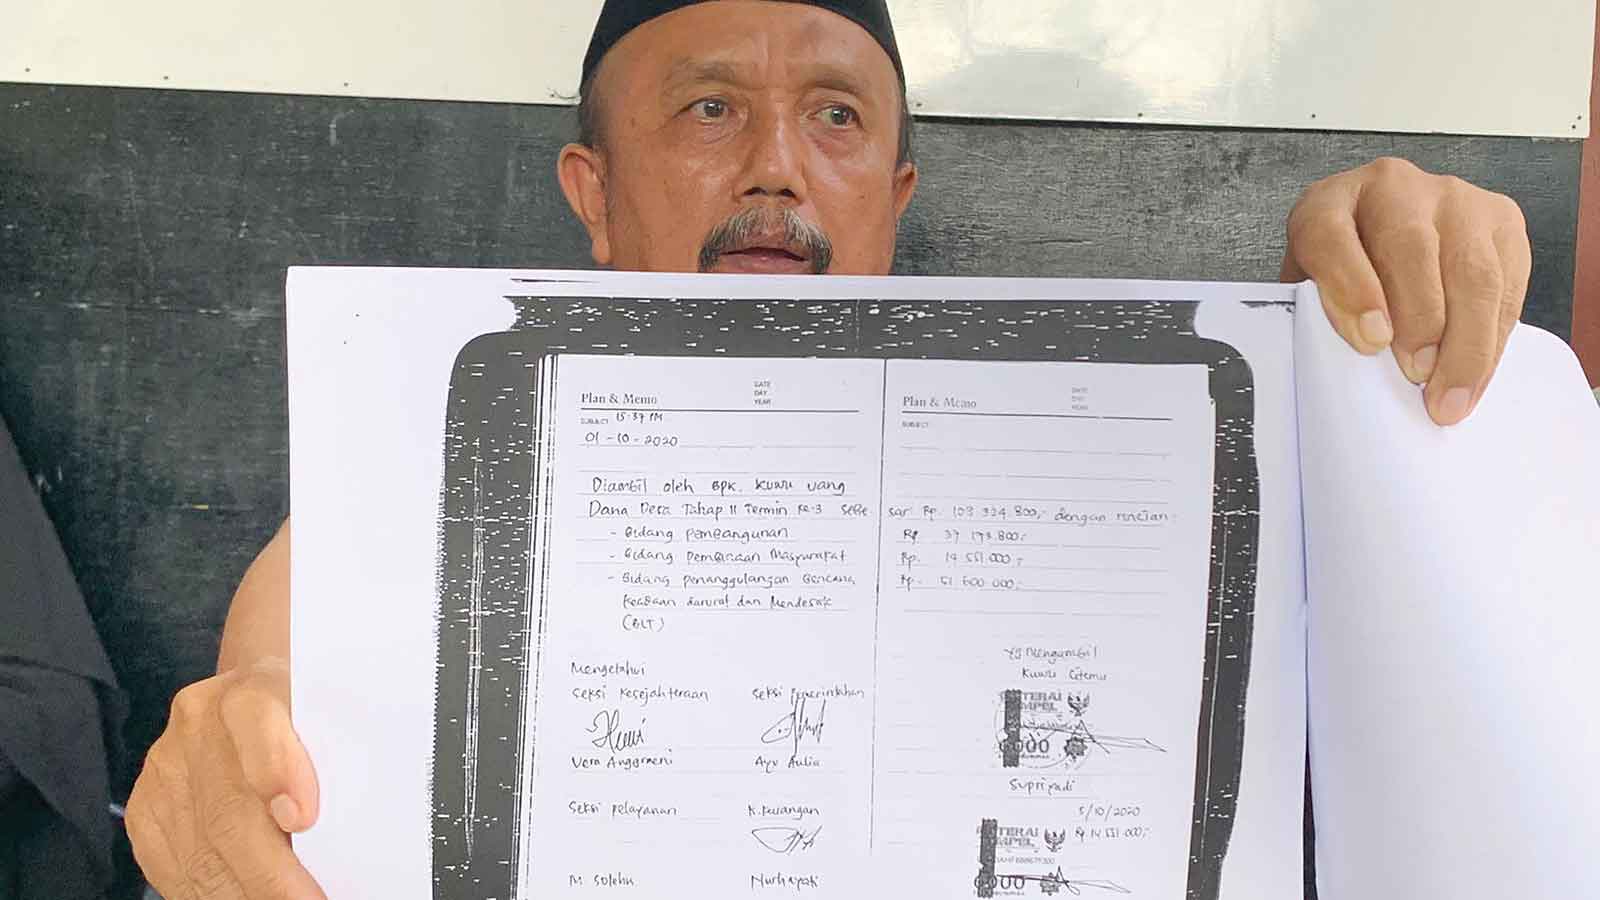 Plan & Memo
DATE
DAY
YEAR
SUBJECT: 15:37 PM
01-10-2020
Diambil oleh BPK. Kuwu uang
Dana Desa Tahap II Termin ke-3 sebe
- Bidang Pembangunan
- Bidang Pembinaan Masyarakat
- Bidang penanggulangan Bencana
Keadaan darurat dan Mendesak
(BLT)
Mengetahui
Seksi Kesejahteraan
Seksi Pemerintahan
Vera Anggraeni
Ayu Aulia
Seksi Pelayanan
K. Keuangan
M. Solehu
Nurhayati
Plan & Memo
DATE
DAY
YEAR
SUBJECT:
sar Rp. 103.324.800,- dengan rincian
Rp 37.173.800,-
Rp. 14.551.000,-
Rp. 51.600.000,-
Yg Mengambil
Kuwu Citemu
METERAI
TEMPEL
6000
Supriyadi
5/10/2020
Rp 14.551.000,-
METERAI
TEMPEL
6000